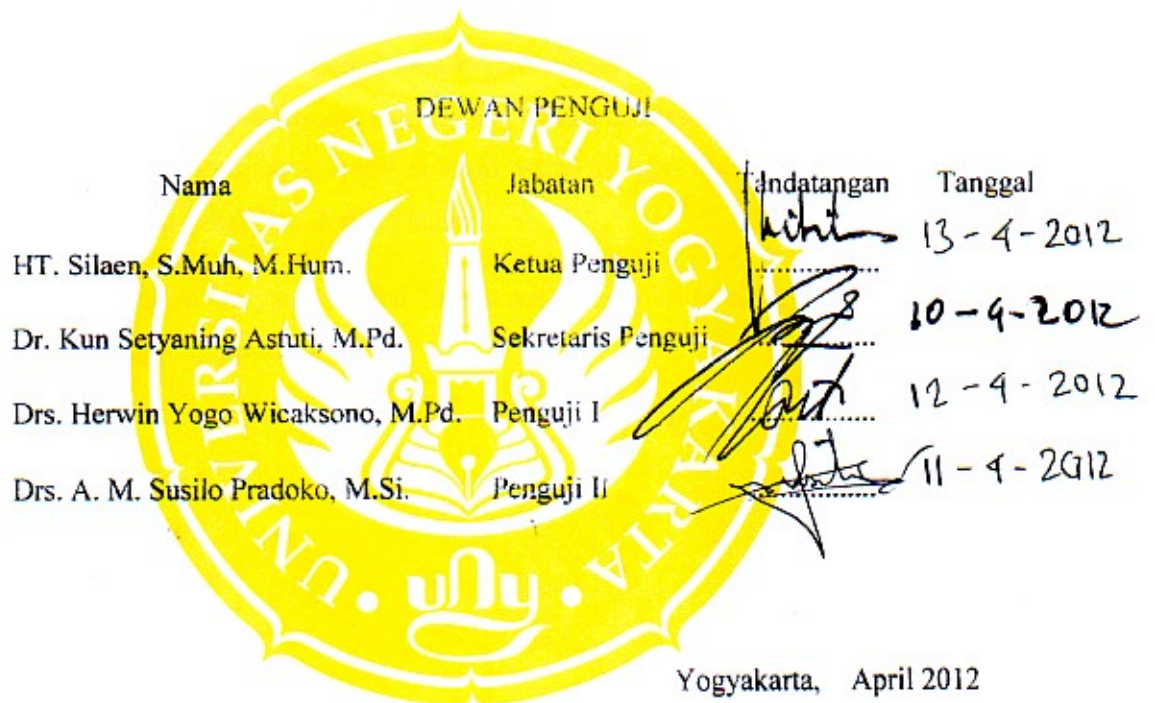 DEWAN PENGUJI
Nama Jabatan Tandatangan Tanggal
HT. Silaen, S.Muh, M.Hum. Ketua Penguji 13-4-2012
Dr. Kun Setyaning Astuti, M.Pd. Sekretaris Penguji 10-4-2012
Drs. Herwin Yogo Wicaksono, M.Pd. Penguji I 12-4-2012
Drs. A. M. Susilo Pradoko, M.Si. Penguji II 11-4-2012
UNIVERSITAS NEGERI YOGYAKARTA
uny
Yogyakarta, April 2012